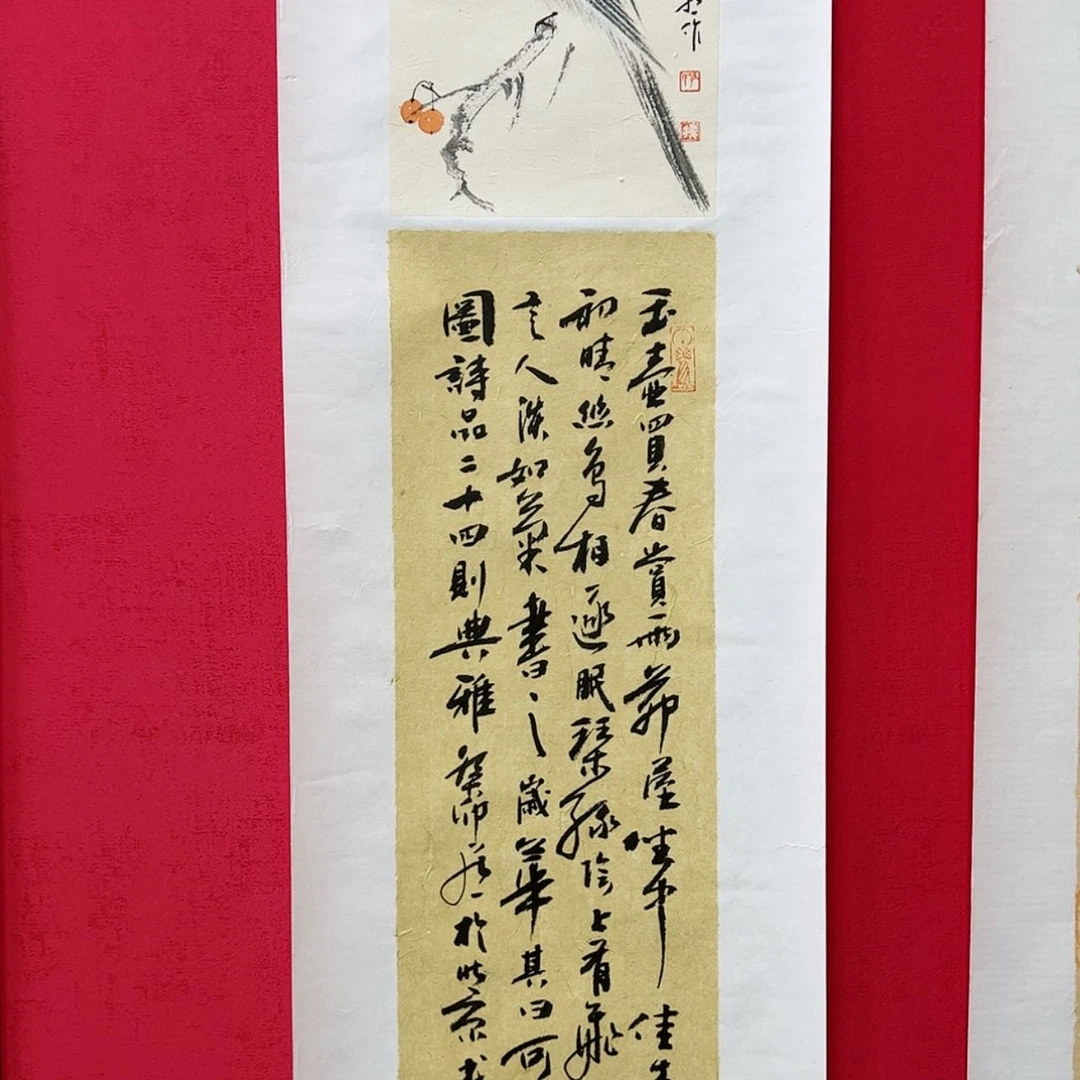 作
玉壺買春賞雨茆屋坐中佳
初晴幽鳥相逐眠琴綠陰上有飛
言人淡如菊書之歲華其曰可
圖詩品二十四則典雅癸卯於北京